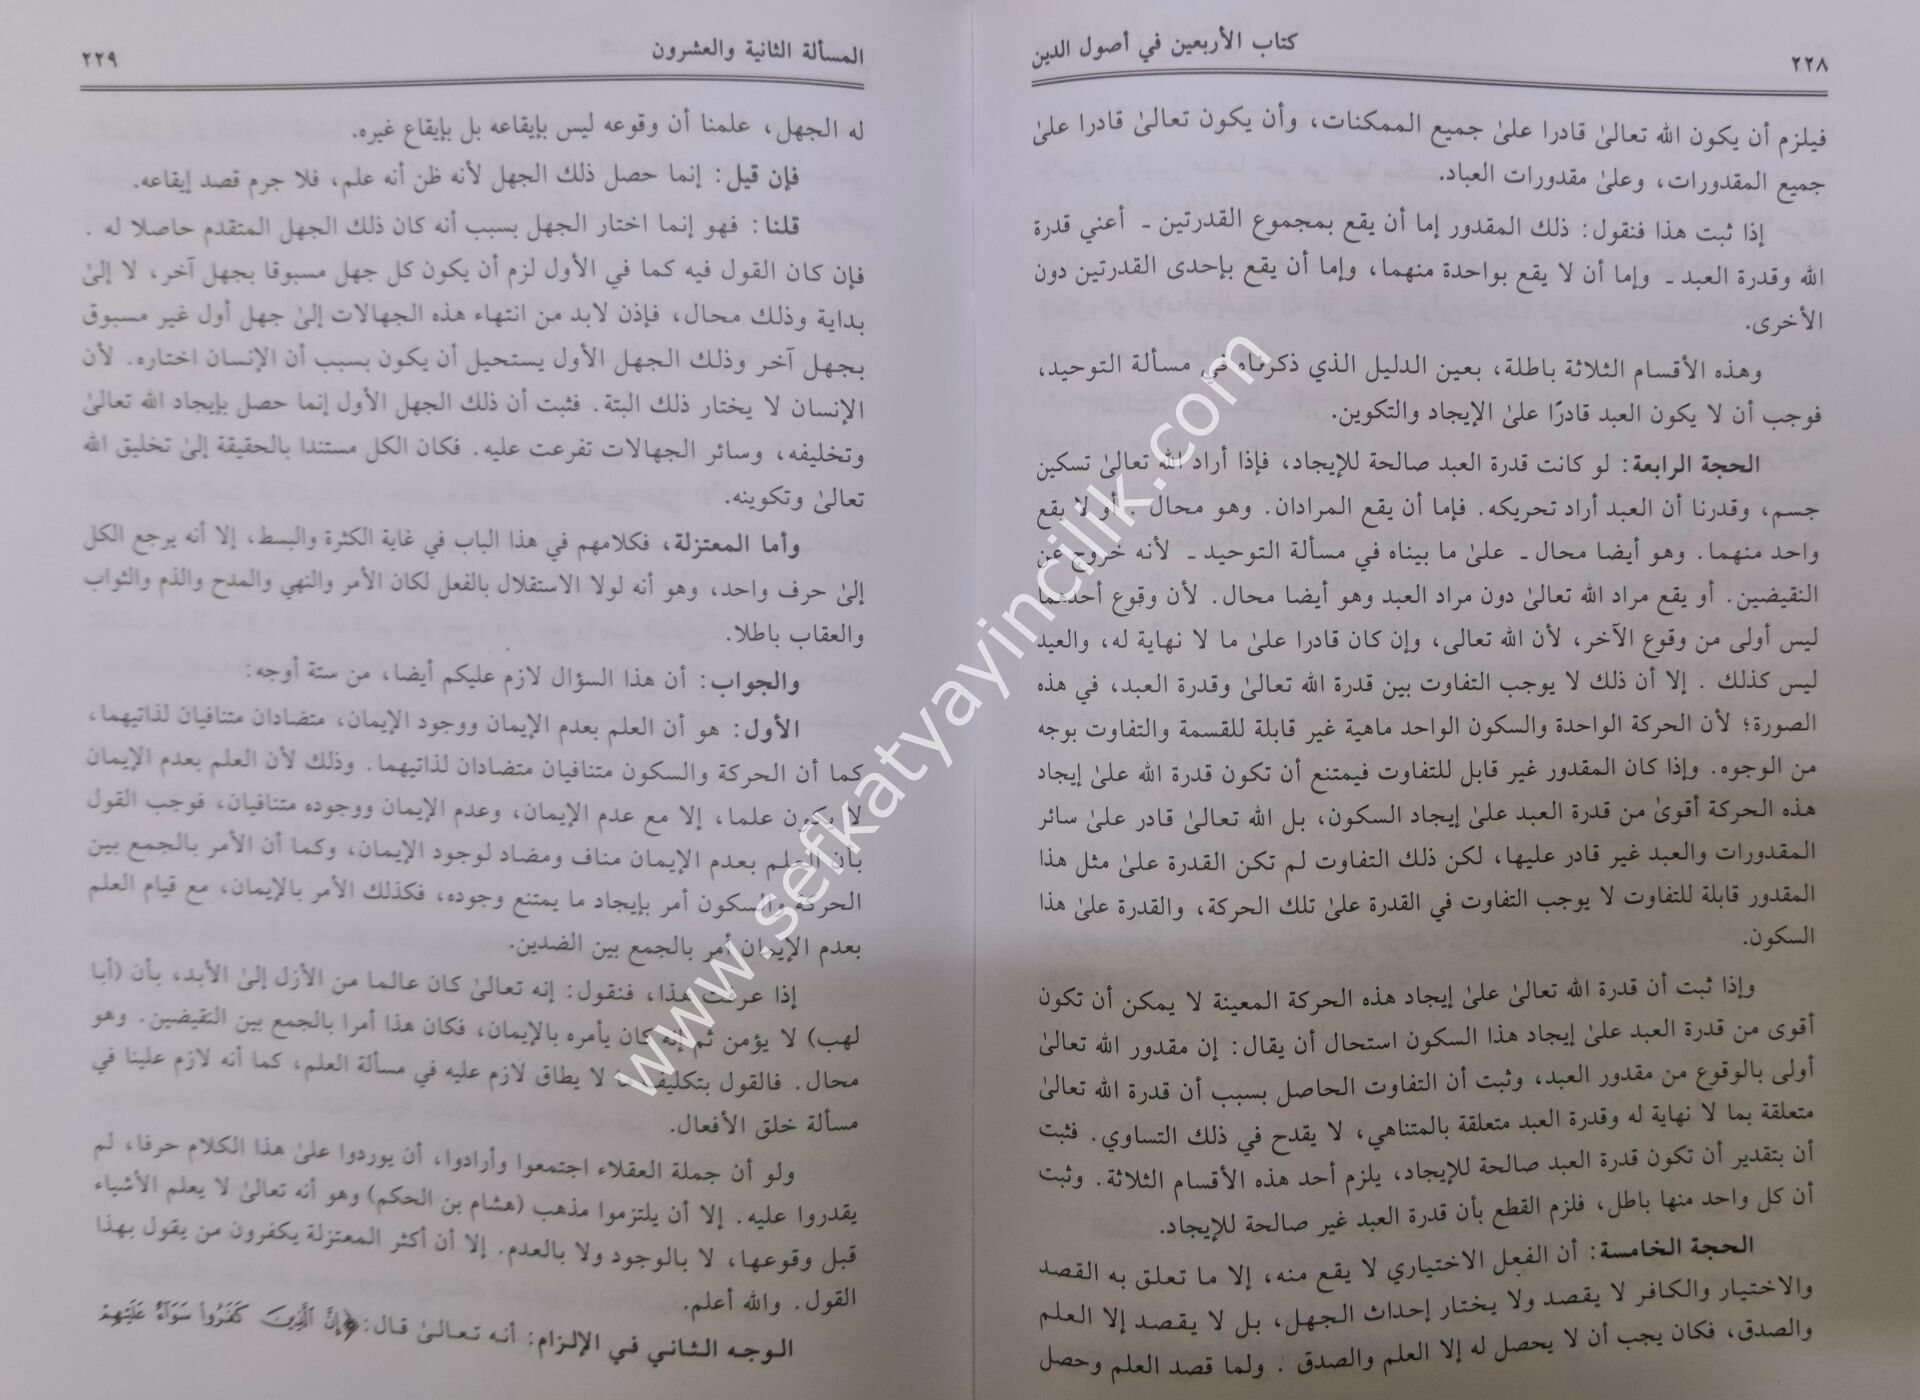 ٢٢٨
كتاب الأربعين في أصول الدين
فيلزم أن يكون الله تعالىٰ قادرا علىٰ جميع الممكنات، وأن يكون تعالىٰ قادرا علىٰ
جميع المقدورات، وعلىٰ مقدورات العباد.
إذا ثبت هذا فنقول: ذلك المقدور إما أن يقع بمجموع القدرتين ـ أعني قدرة
الله وقدرة العبد ـ وإما أن لا يقع بواحدة منهما، وإما أن يقع بإحدى القدرتين دون
الأخرى.
وهذه الأقسام الثلاثة باطلة، بعين الدليل الذي ذكرناه في مسألة التوحيد،
فوجب أن لا يكون العبد قادرًا علىٰ الإيجاد والتكوين.
الحجة الرابعة: لو كانت قدرة العبد صالحة للإيجاد، فإذا أراد الله تعالىٰ تسكين
جسم، وقدرنا أن العبد أراد تحريكه. فإما أن يقع المرادان. وهو محال . أو لا يقع
واحد منهما. وهو أيضا محال ـ علىٰ ما بيناه في مسألة التوحيد ـ لأنه خروج عن
النقيضين. أو يقع مراد الله تعالىٰ دون مراد العبد وهو أيضا محال. لأن وقوع أحدهما
ليس أولى من وقوع الآخر، لأن الله تعالى، وإن كان قادرا علىٰ ما لا نهاية له، والعبد
ليس كذلك . إلا أن ذلك لا يوجب التفاوت بين قدرة الله تعالىٰ وقدرة العبد، في هذه
الصورة؛ لأن الحركة الواحدة والسكون الواحد ماهية غير قابلة للقسمة والتفاوت بوجه
من الوجوه. وإذا كان المقدور غير قابل للتفاوت فيمتنع أن تكون قدرة الله علىٰ إيجاد
هذه الحركة أقوىٰ من قدرة العبد علىٰ إيجاد السكون، بل الله تعالىٰ قادر علىٰ سائر
المقدورات والعبد غير قادر عليها، لكن ذلك التفاوت لم تكن القدرة علىٰ مثل هذا
المقدور قابلة للتفاوت لا يوجب التفاوت في القدرة علىٰ تلك الحركة، والقدرة علىٰ هذا
السكون.
وإذا ثبت أن قدرة الله تعالىٰ علىٰ إيجاد هذه الحركة المعينة لا يمكن أن تكون
أقوى من قدرة العبد علىٰ إيجاد هذا السكون استحال أن يقال: إن مقدور الله تعالىٰ
أولى بالوقوع من مقدور العبد، وثبت أن التفاوت الحاصل بسبب أن قدرة الله تعالىٰ
متعلقة بما لا نهاية له وقدرة العبد متعلقة بالمتناهي، لا يقدح في ذلك التساوي. فثبت
أن بتقدير أن تكون قدرة العبد صالحة للإيجاد، يلزم أحد هذه الأقسام الثلاثة. وثبت
أن كل واحد منها باطل، فلزم القطع بأن قدرة العبد غير صالحة للإيجاد.
الحجة الخامسة: أن الفعل الاختياري لا يقع منه، إلا ما تعلق به القصد
والاختيار والكافر لا يقصد ولا يختار إحداث الجهل، بل لا يقصد إلا العلم
والصدق، فكان يجب أن لا يحصل له إلا العلم والصدق . ولما قصد العلم وحصل
المسألة الثانية والعشرون
٢٢٩
له الجهل، علمنا أن وقوعه ليس بإيقاعه بل بإيقاع غيره.
فإن قيل: إنما حصل ذلك الجهل لأنه ظن أنه علم، فلا جرم قصد إيقاعه.
قلنا: فهو إنما اختار الجهل بسبب أنه كان ذلك الجهل المتقدم حاصلا له .
فإن كان القول فيه كما في الأول لزم أن يكون كل جهل مسبوقا بجهل آخر، لا إلىٰ
بداية وذلك محال، فإذن لابد من انتهاء هذه الجهالات إلىٰ جهل أول غير مسبوق
بجهل آخر وذلك الجهل الأول يستحيل أن يكون بسبب أن الإنسان اختاره. لأن
الإنسان لا يختار ذلك البتة. فثبت أن ذلك الجهل الأول إنما حصل بإيجاد الله تعالىٰ
وتخليفه، وسائر الجهالات تفرعت عليه. فكان الكل مستندا بالحقيقة إلىٰ تخليق الله
تعالىٰ وتكوينه.
وأما المعتزلة، فكلامهم في هذا الباب في غاية الكثرة والبسط، إلا أنه يرجع الكل
إلىٰ حرف واحد، وهو أنه لولا الاستقلال بالفعل لكان الأمر والنهي والمدح والذم والثواب
والعقاب باطلا.
والجواب: أن هذا السؤال لازم عليكم أيضا، من ستة أوجه:
الأول: هو أن العلم بعدم الإيمان ووجود الإيمان، متضادان متنافيان لذاتيهما،
كما أن الحركة والسكون متنافيان متضادان لذاتيهما. وذلك لأن العلم بعدم الإيمان
لا يكون علما، إلا مع عدم الإيمان، وعدم الإيمان ووجوده متنافيان، فوجب القول
بأن العلم بعدم الإيمان مناف ومضاد لوجود الإيمان، وكما أن الأمر بالجمع بين
الحركة والسكون أمر بإيجاد ما يمتنع وجوده، فكذلك الأمر بالإيمان، مع قيام العلم
بعدم الإيمان أمر بالجمع بين الضدين.
إذا عرفت هذا، فنقول: إنه تعالىٰ كان عالما من الأزل إلىٰ الأبد، بأن (أبا
لهب) لا يؤمن ثم إنه كان يأمره بالإيمان، فكان هذا أمرا بالجمع بين النقيضين. وهو
محال. فالقول بتكليف ما لا يطاق لازم عليه في مسألة العلم، كما أنه لازم علينا في
مسألة خلق الأفعال.
ولو أن جملة العقلاء اجتمعوا وأرادوا، أن يوردوا علىٰ هذا الكلام حرفا، لم
يقدروا عليه. إلا أن يلتزموا مذهب (هشام بن الحكم) وهو أنه تعالىٰ لا يعلم الأشياء
قبل وقوعها، لا بالوجود ولا بالعدم. إلا أن أكثر المعتزلة يكفرون من يقول بهذا
القول. والله أعلم.
الوجه الثاني في الإلزام: أنه تعالىٰ قال: ﴿إِنَّ الَّذِينَ كَفَرُوا سَوَاءٌ عَلَيْهِمْ
www.sefkatyayincilik.com